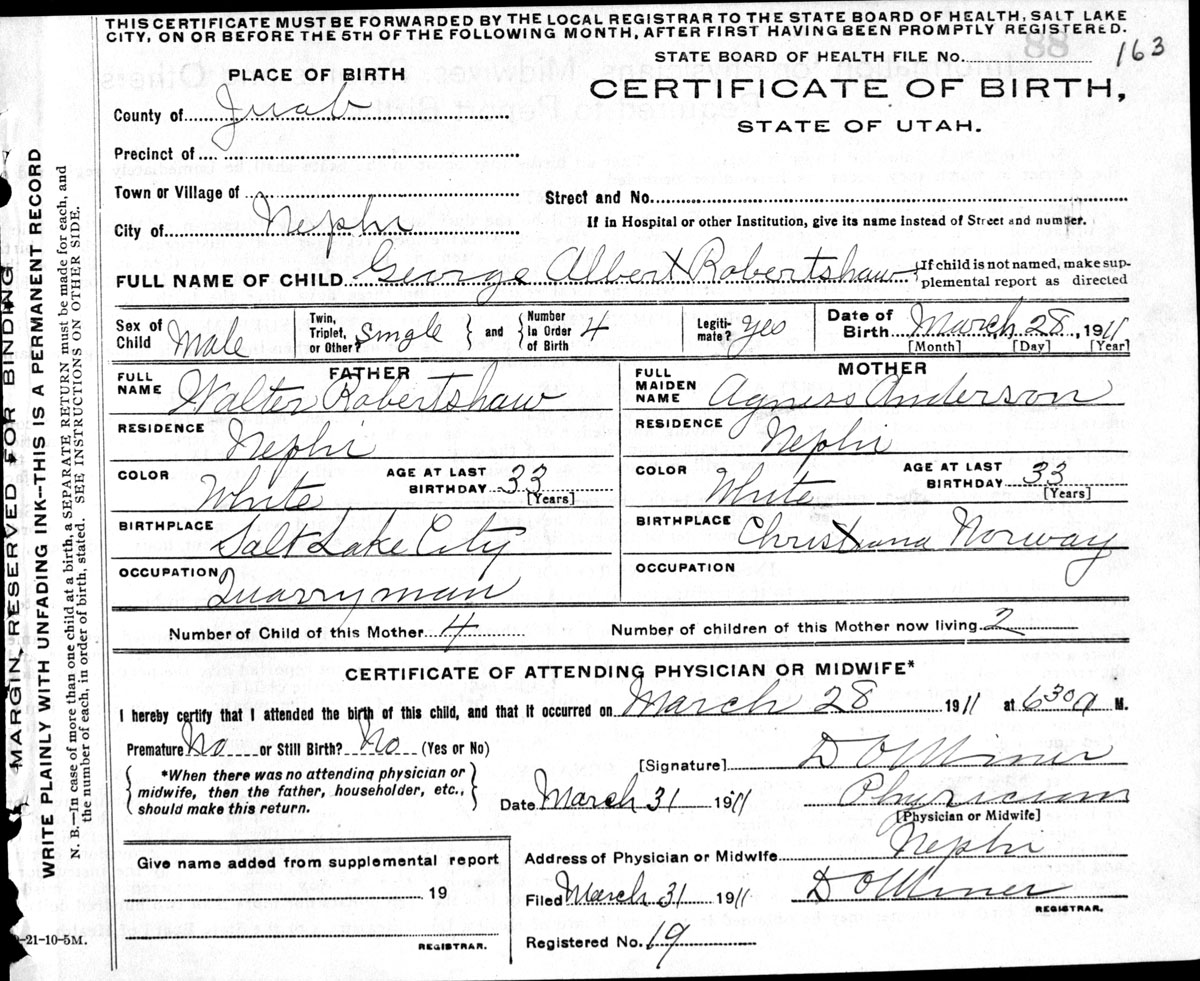 THIS CERTIFICATE MUST BE FORWARDED BY THE LOCAL REGISTRAR TO THE STATE BOARD OF HEALTH, SALT LAKE
CITY, ON OR BEFORE THE 5TH OF THE FOLLOWING MONTH, AFTER FIRST HAVING BEEN PROMPTLY REGISTERED.
STATE BOARD OF HEALTH FILE No. 163
PLACE OF BIRTH
CERTIFICATE OF BIRTH,
STATE OF UTAH.
County of Juab
Precinct of
Town or Village of
Street and No.
City of Nephi
If in Hospital or other Institution, give its name instead of Street and number.
FULL NAME OF CHILD George Albert Robertshaw {If child is not named, make sup-
plemental report as directed
Sex of Child Male Twin, Triplet, or Other? Single } and { Number in Order of Birth 4 Legiti-mate? Yes Date of Birth March 28, 1911
[Month] [Day] [Year]
FATHER MOTHER
FULL NAME Walter Robertshaw FULL MAIDEN NAME Agness Anderson
RESIDENCE Nephi RESIDENCE Nephi
COLOR White AGE AT LAST BIRTHDAY 33 [Years] COLOR White AGE AT LAST BIRTHDAY 33 [Years]
BIRTHPLACE Salt Lake City BIRTHPLACE Christiana Norway
OCCUPATION Quarryman OCCUPATION
Number of Child of this Mother 4 Number of children of this Mother now living 2
CERTIFICATE OF ATTENDING PHYSICIAN OR MIDWIFE*
I hereby certify that I attended the birth of this child, and that it occurred on March 28 1911 at 630a M.
Premature No or Still Birth? No (Yes or No)
[Signature] D O Miner
{ *When there was no attending physician or
midwife, then the father, householder, etc.,
should make this return. }
Date March 31 1911 Physician
[Physician or Midwife]
Address of Physician or Midwife Nephi
Give name added from supplemental report
19
REGISTRAR.
Filed March 31 1911 D O Miner
REGISTRAR.
Registered No. 19
-21-10-5M.
MARGIN RESERVED FOR BINDING
WRITE PLAINLY WITH UNFADING INK--THIS IS A PERMANENT RECORD
N. B.—In case of more than one child at a birth, a SEPARATE RETURN must be made for each, and
the number of each, in order of birth, stated. SEE INSTRUCTIONS ON OTHER SIDE.